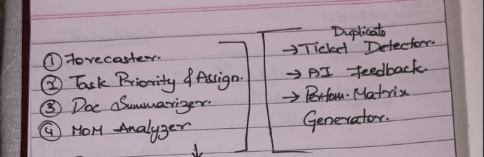 ① Forecaster.
② Task Priority & Assign.
③ Doc Summarizer.
④ MOM Analyzer
Duplicate
→ Ticket Detector.
→ AI Feedback.
→ Perfom. Matrix
Generator.